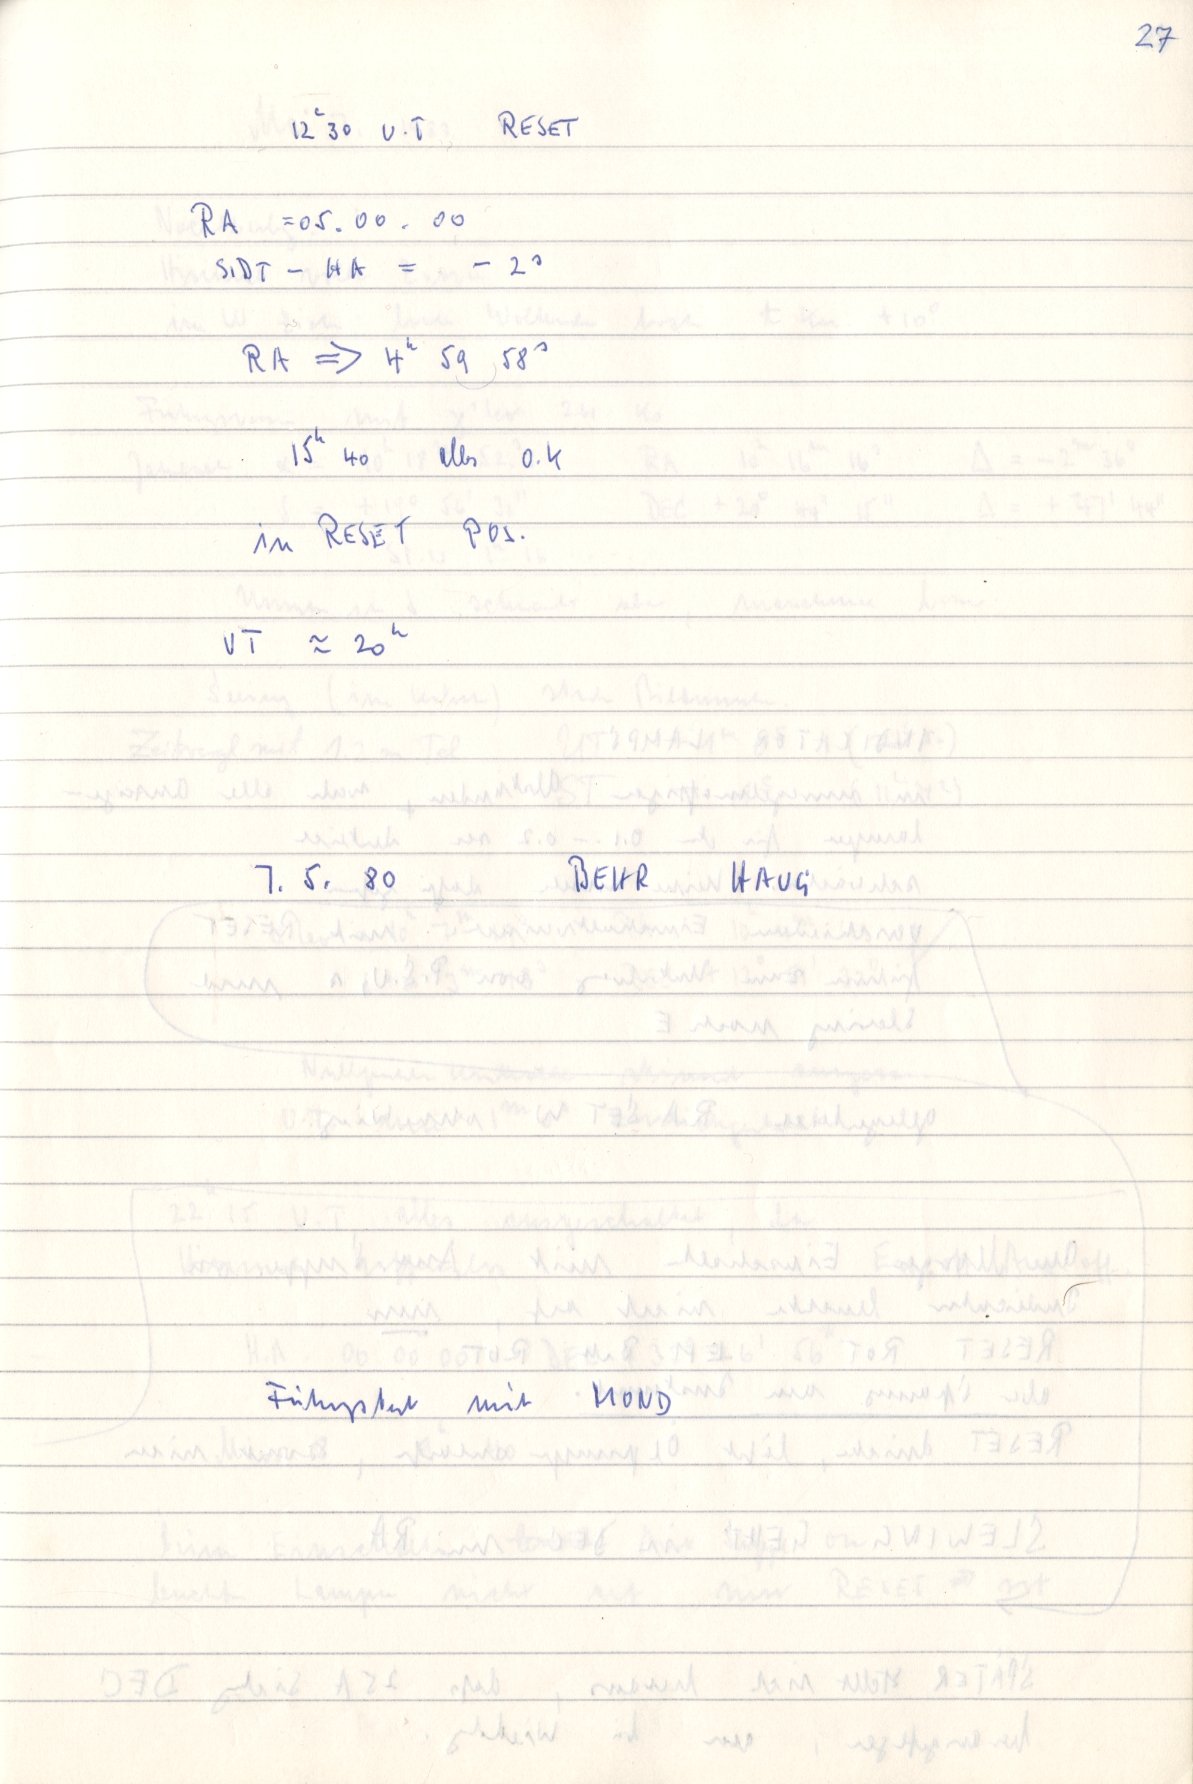 27
12ʰ30 U.T RESET
RA = 05.00.00
SIDT – HA = – 2ˢ
RA ⇒ 4ʰ 59 58ˢ
15ʰ 40 alles O.K
in RESET POS.
UT ≈ 20ʰ
7. 5. 80 BEHR HAUG
mit MOND